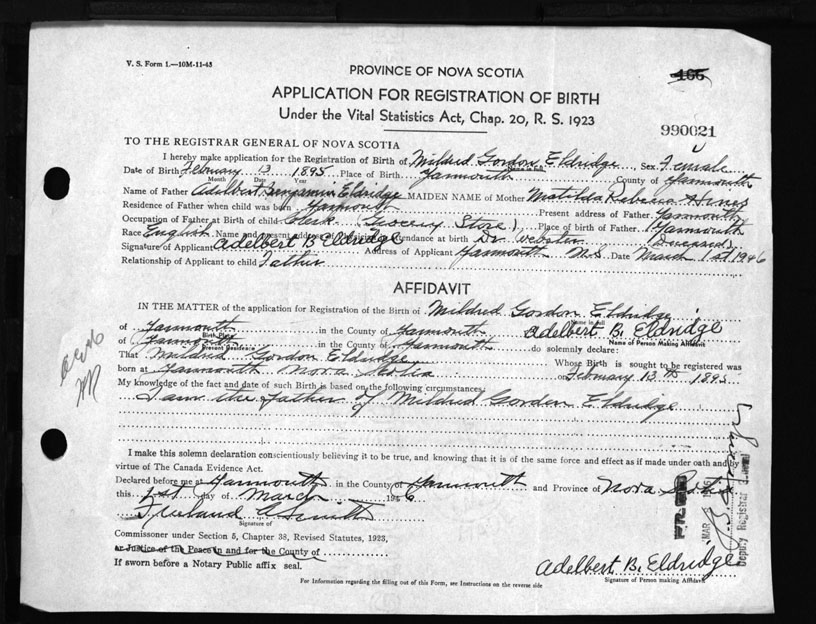 V. S. Form 1.—10M-11-43
PROVINCE OF NOVA SCOTIA
166
APPLICATION FOR REGISTRATION OF BIRTH
Under the Vital Statistics Act, Chap. 20, R. S. 1923
990021
TO THE REGISTRAR GENERAL OF NOVA SCOTIA
I hereby make application for the Registration of Birth of Mildred Gordon Eldridge, Sex Female
Date of Birth February 13 1895 Place of Birth Yarmouth County of Yarmouth
Month Date Year
Name of Father Adelbert Benjamin Eldridge MAIDEN NAME of Mother Matilda Rebecca Hines
Residence of Father when child was born Yarmouth Present address of Father Yarmouth
Occupation of Father at Birth of child Clerk (Grocery Store) Place of birth of Father Yarmouth
Race English Name and present address of physician in attendance at birth Dr. Webster (Deceased)
Signature of Applicant Adelbert B Eldridge Address of Applicant Yarmouth N.S. Date March 1st 1946
Relationship of Applicant to child Father
AFFIDAVIT
IN THE MATTER of the application for Registration of the Birth of Mildred Gordon Eldridge
Name in full
of Yarmouth in the County of Yarmouth Adelbert B. Eldridge
Birth Place
Name of Person Making Affidavit
of Yarmouth in the County of Yarmouth do solemnly declare:
Present Residence
That Mildred Gordon Eldridge Whose Birth is sought to be registered was
born at Yarmouth Nova Scotia on February 13th 1895
My knowledge of the fact and date of such Birth is based on the following circumstances:
I am the Father of Mildred Gordon Eldridge
I make this solemn declaration conscientiously believing it to be true, and knowing that it is of the same force and effect as if made under oath and by
virtue of The Canada Evidence Act.
Declared before me at Yarmouth in the County of Yarmouth and Province of Nova Scotia
this 1st day of March 1946
Signature of
Commissioner under Section 5, Chapter 38, Revised Statutes, 1923,
or Justice of the Peace in and for the County of
If sworn before a Notary Public affix seal.
Adelbert B. Eldridge
Signature of Person making Affidavit
For Information regarding the filling out of this Form, see Instructions on the reverse side
MAR
Deputy Registrar